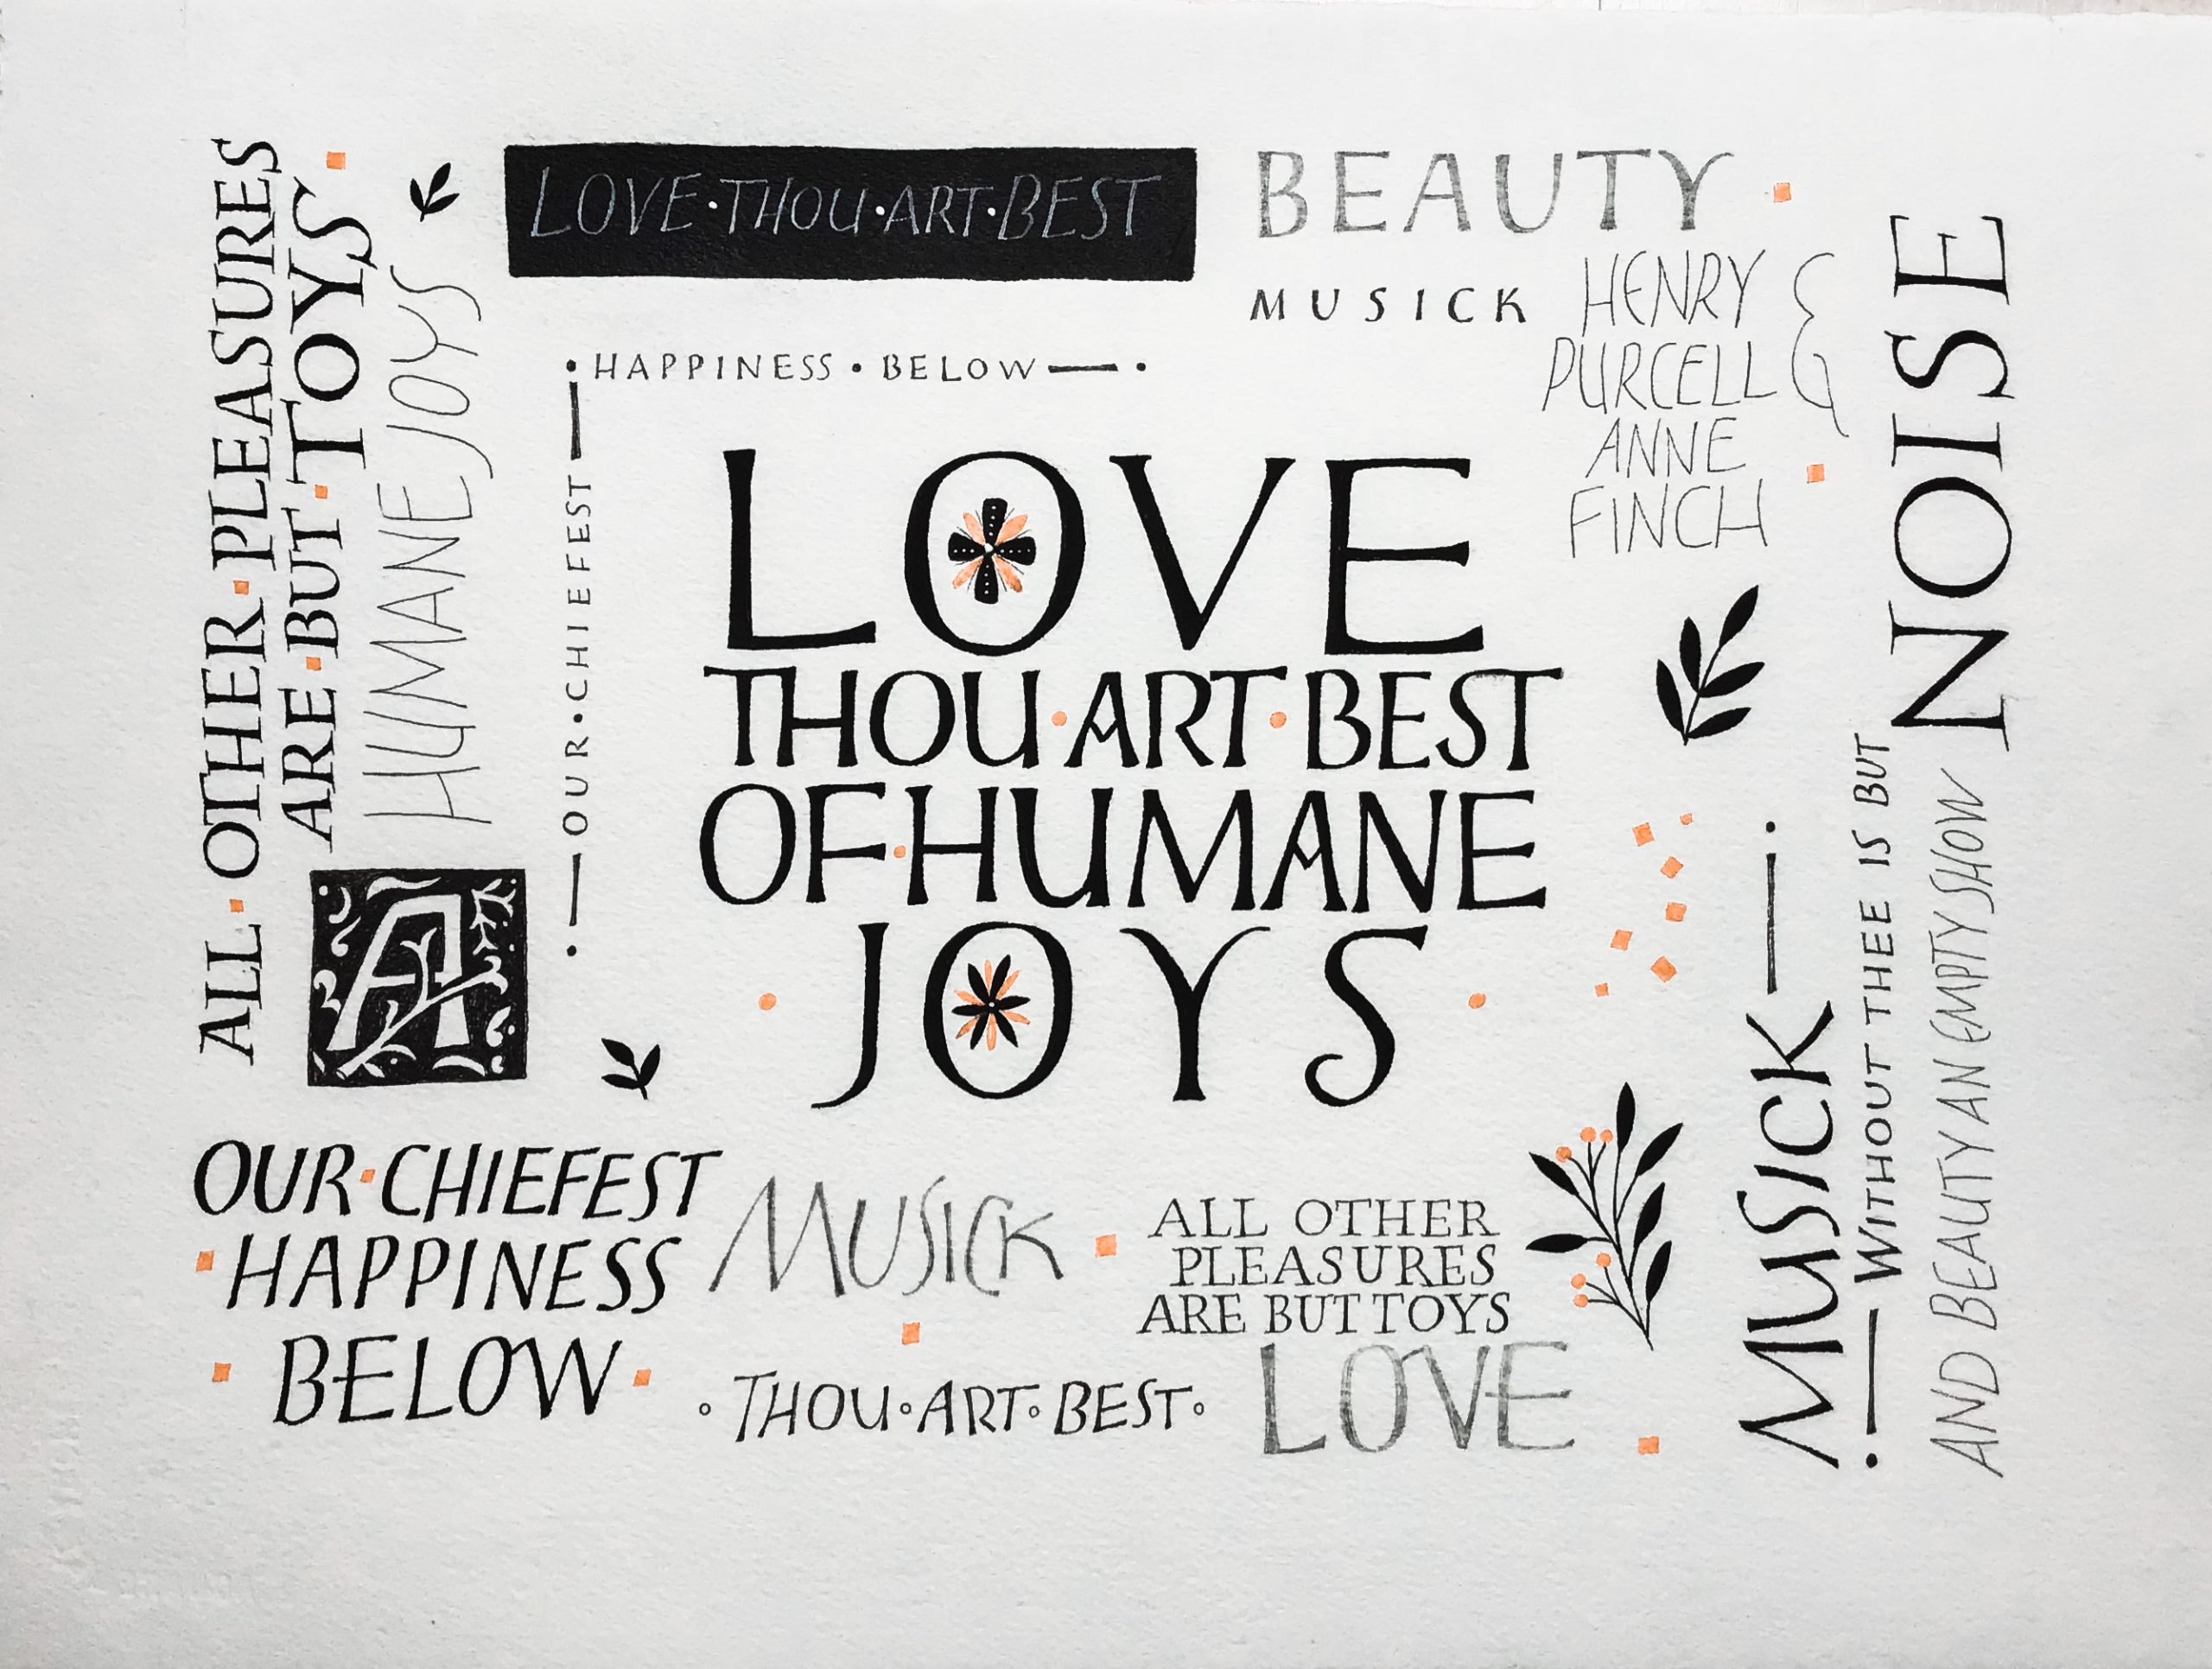 ALL·OTHER·PLEASURES
ARE·BUT·TOYS
HUMANE JOYS
A
LOVE·THOU·ART·BEST
BEAUTY
MUSICK
HENRY
PURCELL &
ANNE
FINCH
·HAPPINESS·BELOW—·
·—OUR·CHIEFEST—
LOVE
THOU·ART·BEST
OF·HUMANE
JOYS
NOISE
MUSICK—·
·—WITHOUT THEE IS BUT
AND BEAUTY AN EMPTY SHOW
OUR·CHIEFEST
HAPPINESS
BELOW
MUSICK
ALL OTHER
PLEASURES
ARE BUT TOYS
THOU·ART·BEST
LOVE